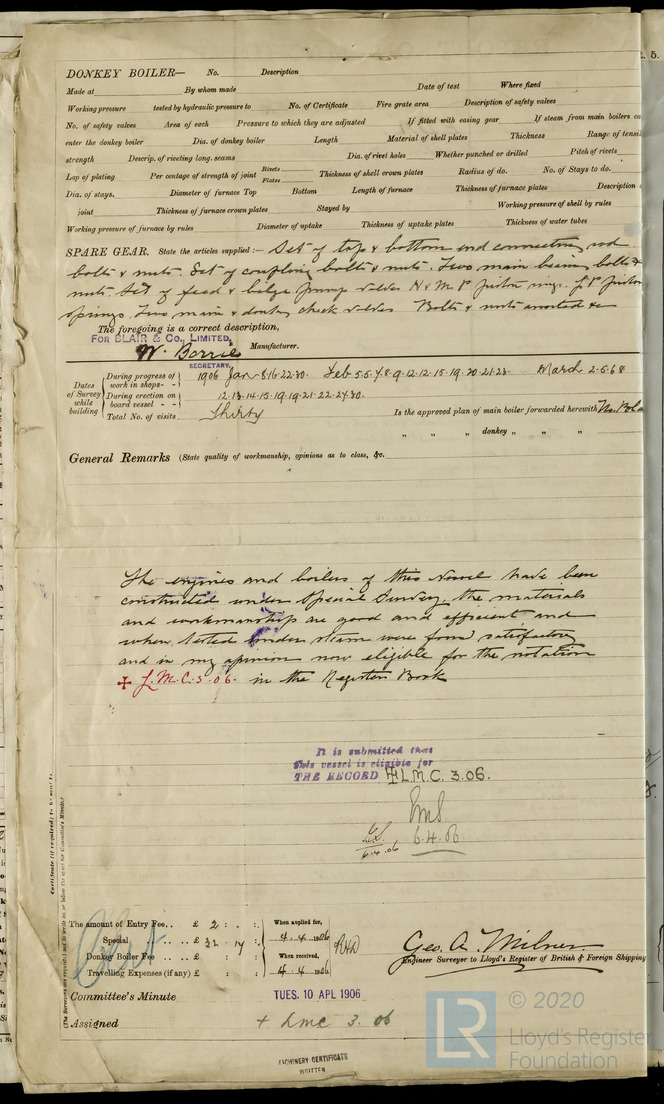 DONKEY BOILER— No. Description
Made at By whom made Date of test Where fixed
Working pressure tested by hydraulic pressure to No. of Certificate Fire grate area Description of safety valves
No. of safety valves Area of each Pressure to which they are adjusted If fitted with easing gear If steam from main boilers ca
enter the donkey boiler Dia. of donkey boiler Length Material of shell plates Thickness Range of tensil
strength Descrip. of riveting long. seams Dia. of rivet holes Whether punched or drilled Pitch of rivets
Lap of plating Per centage of strength of joint Rivets Plates Thickness of shell crown plates Radius of do. No. of Stays to do.
Dia. of stays. Diameter of furnace Top Bottom Length of furnace Thickness of furnace plates Description
joint Thickness of furnace crown plates Stayed by Working pressure of shell by rules
Working pressure of furnace by rules Diameter of uptake Thickness of uptake plates Thickness of water tubes
SPARE GEAR. State the articles supplied :— Set of top & bottom end connecting rod
bolts & nuts. Set of coupling bolts & nuts. Two main bearing bolts &
nuts. Set of feed & bilge pump valves H & M P piston rings. L P piston
springs. Two main & donkey check valves Bolts & nuts assorted &c
The foregoing is a correct description,
FOR BLAIR & Co., LIMITED,
W. Borrie Manufacturer.
SECRETARY.
Dates of Survey while building
During progress of work in shops- - 1906 Jan 8.16.22.30. Feb 5.5.7.8.9.12.12.15.19.20.21.23. March 2.5.6.8
During erection on board vessel - - 12.13.14.15.19.19.21.22.27.30.
Total No. of visits Thirty Is the approved plan of main boiler forwarded herewith
" " " donkey " " "
General Remarks (State quality of workmanship, opinions as to class, &c.
The engines and boilers of this vessel have been
constructed under Special Survey. the materials
and workmanship are good and efficient and
when tested under steam were found satisfactory
and in my opinion now eligible for the notation
+ L.M.C. 3.06. in the Register Book
It is submitted that
this vessel is eligible for
THE RECORD + L.M.C. 3.06.
6.4.06
6.4.06
Certificate (if required) to be sent to
The amount of Entry Fee.. £ 2 : . : When applied for,
Special .. .. £ 32 . 14 : 4.4.1906
Donkey Boiler Fee .. .. £ : : When received,
Travelling Expenses (if any) £ : : 4.4.1906
Geo. A. Milner
Engineer Surveyor to Lloyd's Register of British & Foreign Shipping
Committee's Minute TUES. 10 APL 1906
Assigned + LMC 3.06
MACHINERY CERTIFICATE
WRITTEN
LR © 2020
Lloyd's Register
Foundation